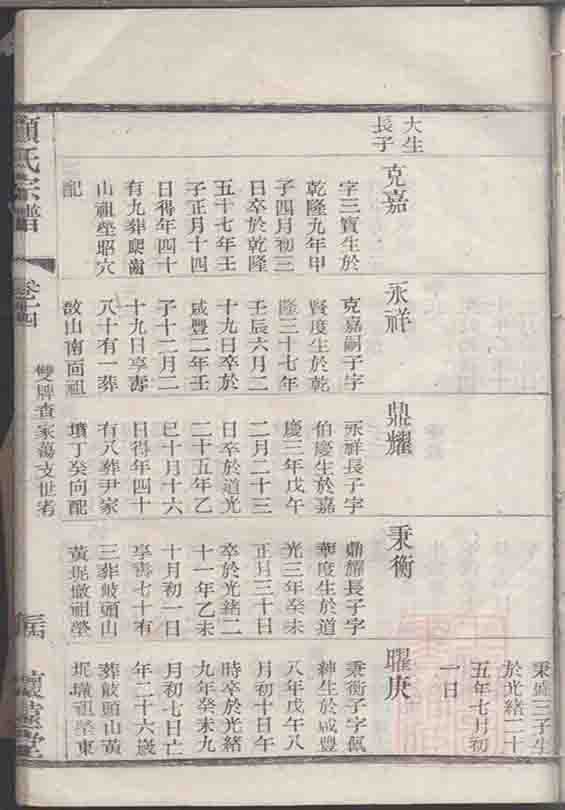 大生
長子
克嘉
字三寶生於
乾隆九年甲
子四月初三
日卒於乾隆
五十七年壬
子正月十四
日得年四十
有九葬龅齒
山祖塋昭穴
配
永祥
克嘉嗣子字
賢度生於乾
隆三十七年
壬辰六月二
十九日卒於
咸豐二年壬
子十二月二
十九日享壽
八十有一葬
故山南向祖
鼎耀
永祥長子字
伯慶生於嘉
慶三年戊午
二月二十三
日卒於道光
二十五年乙
巳十月十六
日得年四十
有八葬尹家
墳丁癸向配
秉衡
鼎耀長子字
華度生於道
光三年癸未
正月三十日
卒於光緒二
十一年乙未
十月初一日
享壽七十有
三葬鼓頭山
黃坭墩祖塋
秉 三子生
於光緒二十
五年七月初
一日
曜庚
秉衡子字佩
紳生於咸豐
八年戊午八
月初十日午
時卒於光緒
九年癸未九
月初七日亡
年二十六歲
葬鼓頭山黃
坭壋祖塋東
顧氏宗譜
卷四
雙牌查家蕩支世者